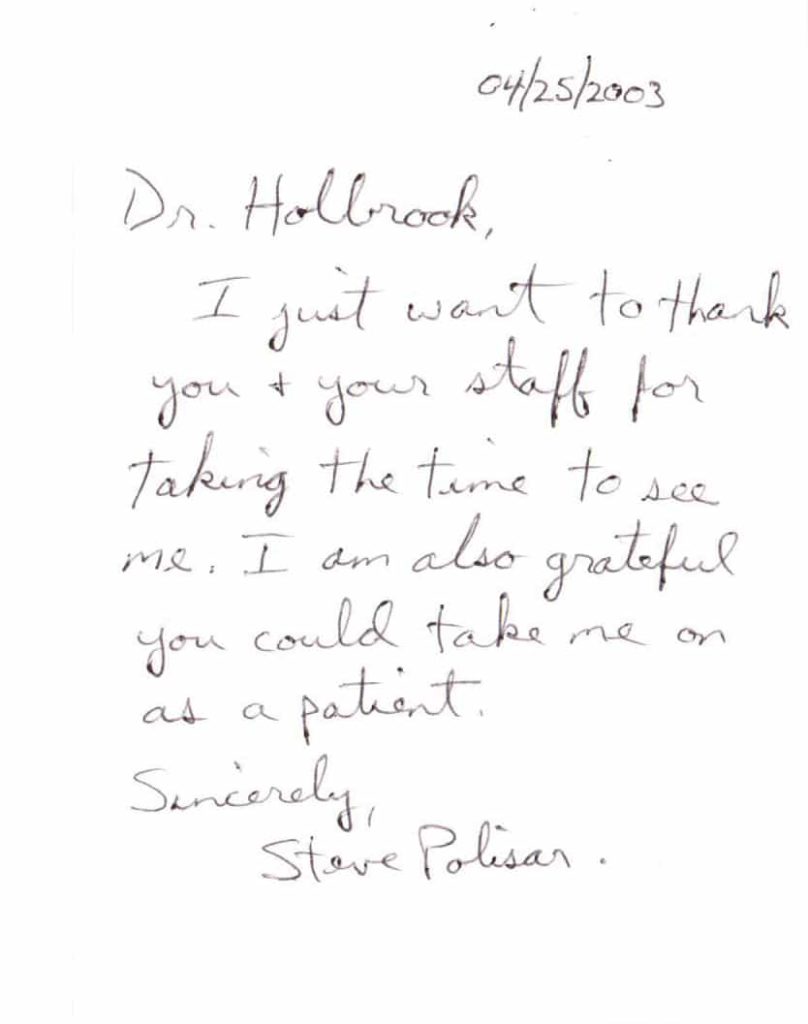 04/25/2003
Dr. Holbrook,
I just want to thank
you + your staff for
taking the time to see
me. I am also grateful
you could take me on
as a patient.
Sincerely,
Steve Polisar.